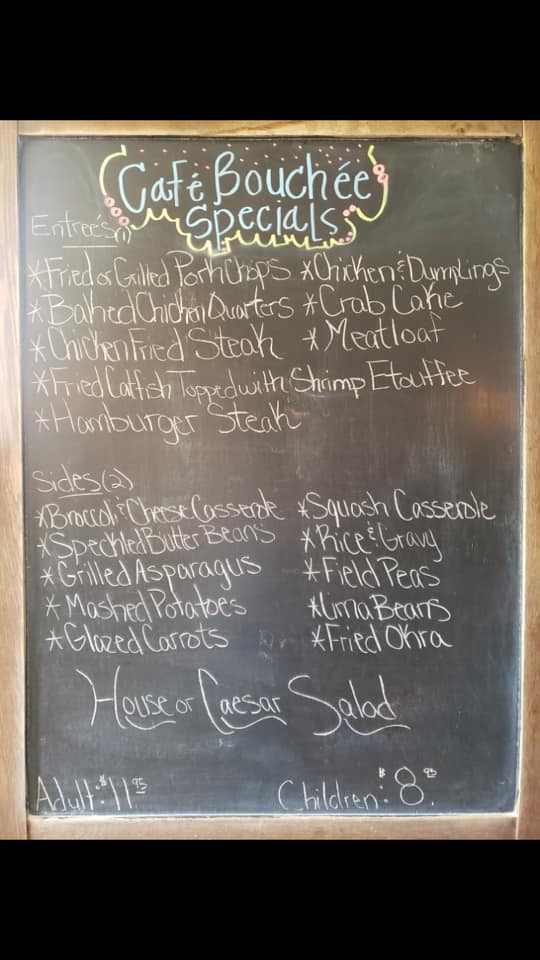 Café Bouchée
Specials
Entrée's(1)
*Fried or Grilled Pork Chops *Chicken & Dumplings
*Baked Chicken Quarters *Crab Cake
*Chicken Fried Steak *Meatloaf
*Fried Catfish Topped with Shrimp Etouffee
*Hamburger Steak
Sides(2)
*Broccoli & Cheese Casserole *Squash Casserole
*Speckled Butter Beans *Rice & Gravy
*Grilled Asparagus *Field Peas
*Mashed Potatoes *Lima Beans
*Glazed Carrots *Fried Okra
House or Caesar Salad
Adult: $11.95 Children: $8.95